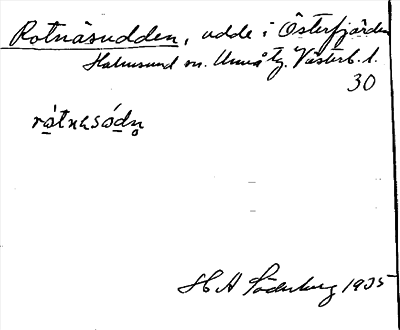 Rotnäsudden, udde i Österfjärden
Holmsund sn. Umeå tg. Västerb. l.
30
rò̱tnɛsó̱dn̥
H A Söderberg 1935